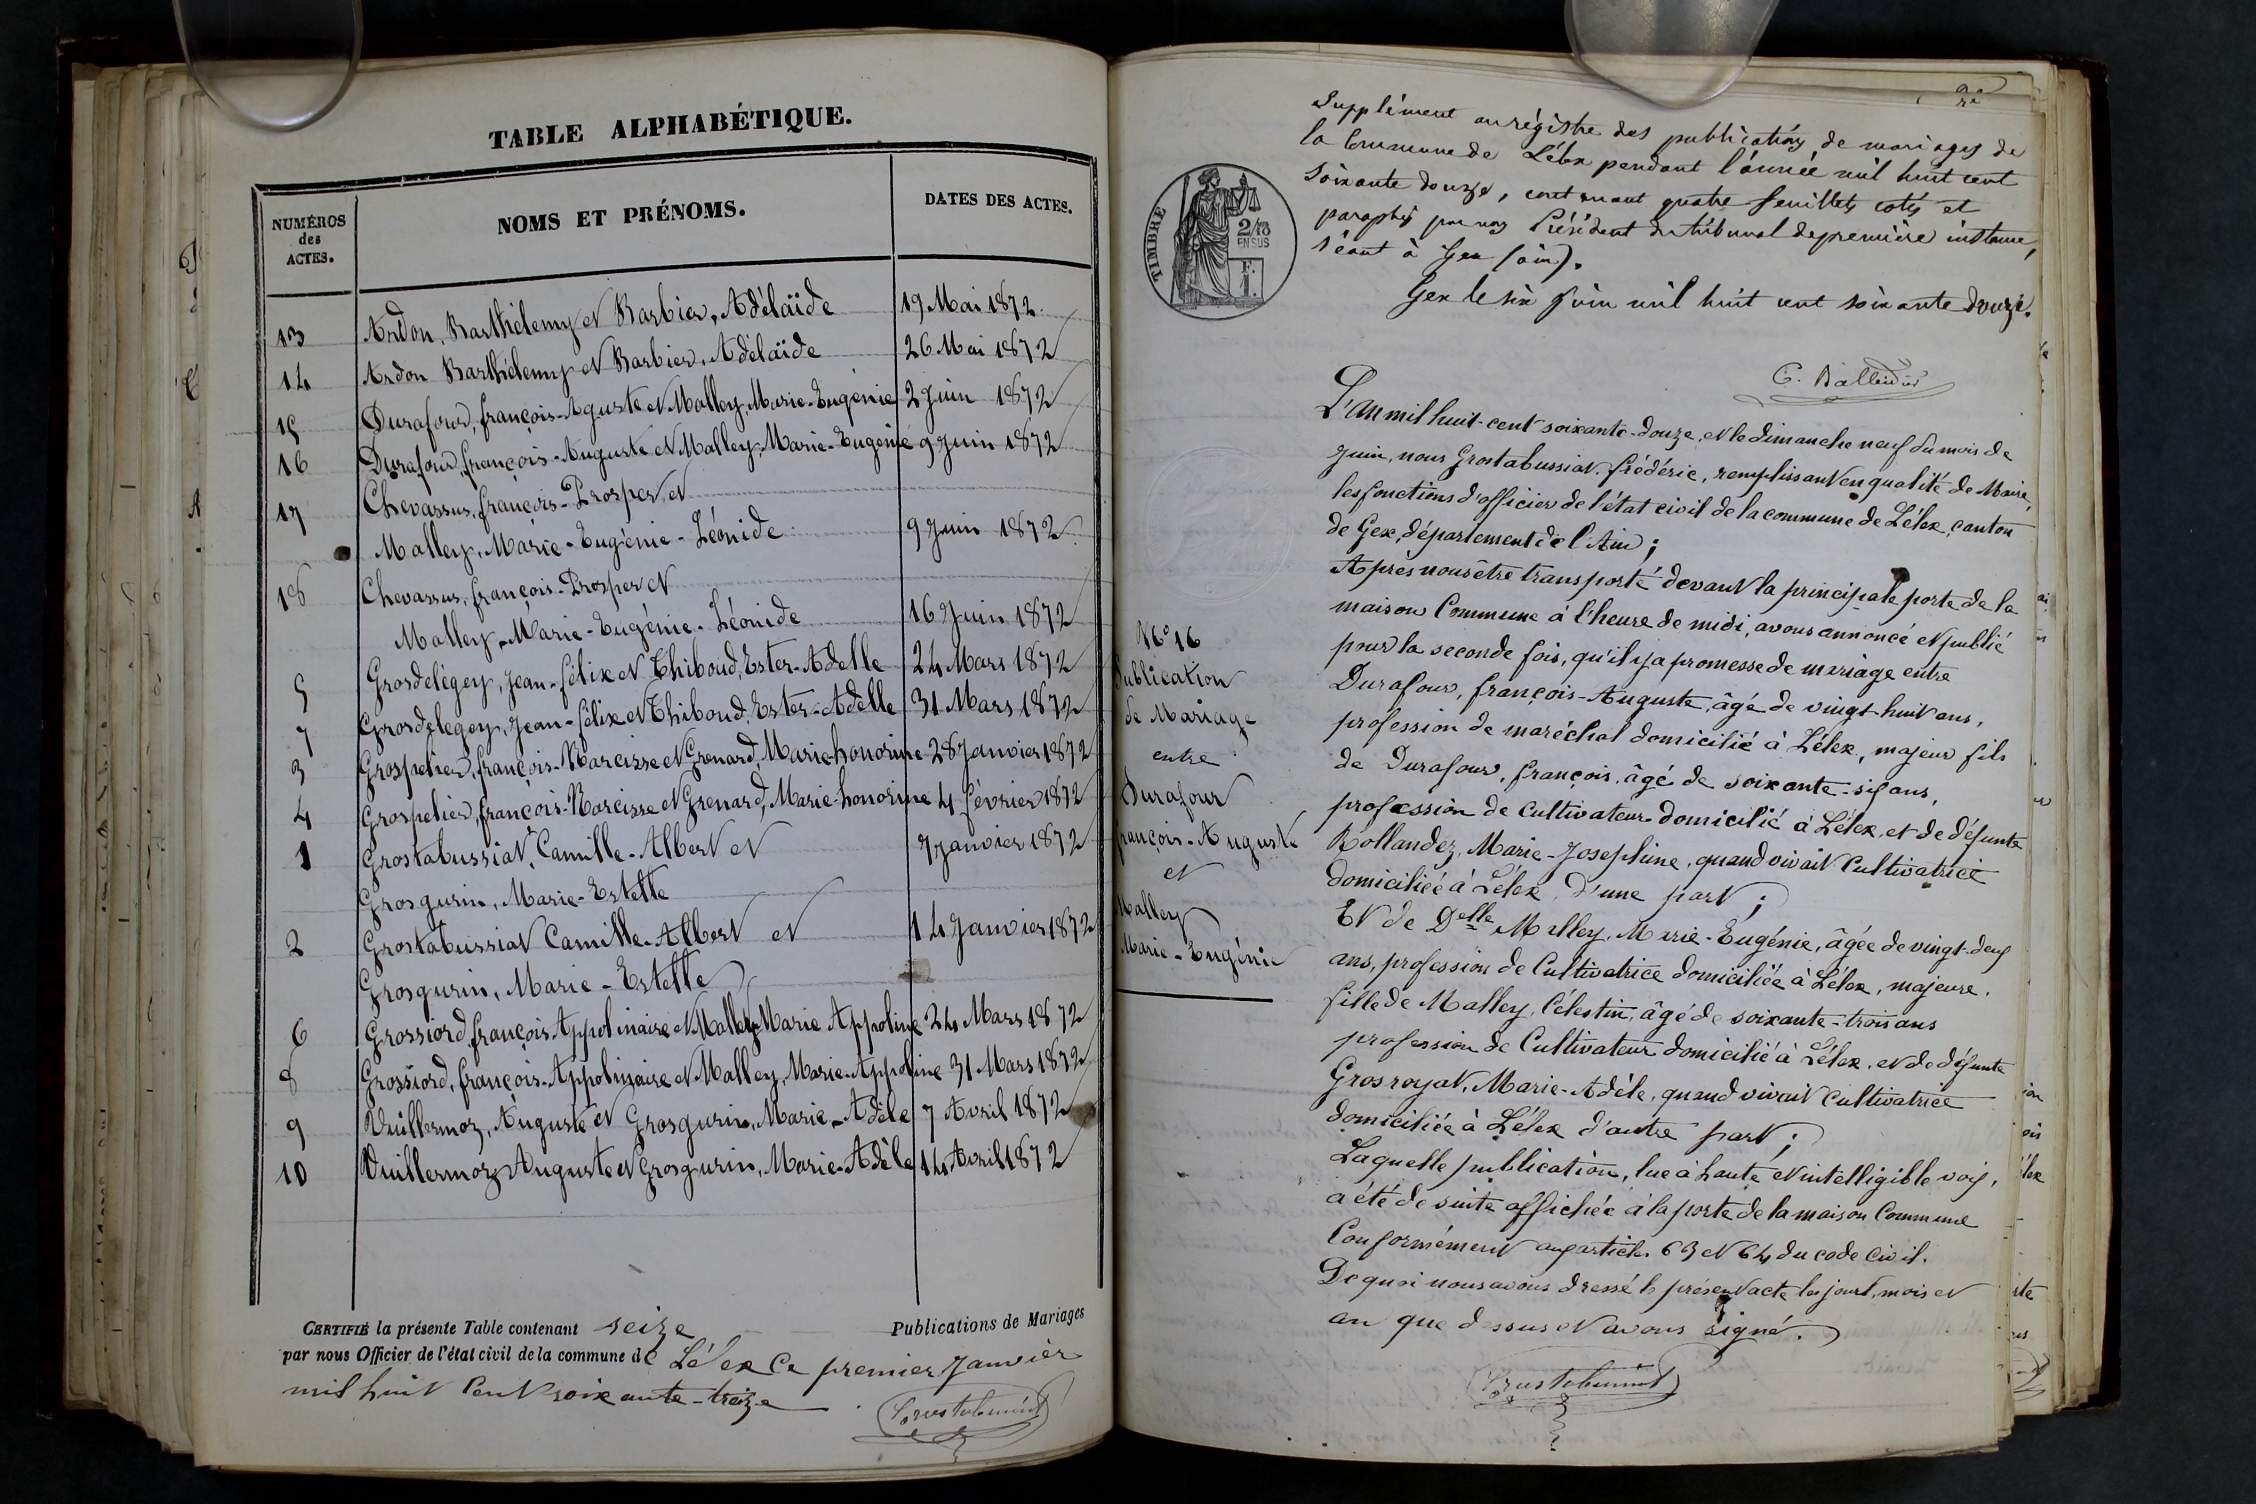 TABLE ALPHABÉTIQUE.
NUMÉROS
des
ACTES.
NOMS ET PRÉNOMS.
DATES DES ACTES.
13 Andon, Barthélemy et Barbier, Adélaïde 19 Mai 1872
14 Andon Barthélemy et Barbier, Adélaïde 26 Mai 1872
15 Durafour, françois-Aguste et Malley, Marie-Eugénie 2 Juin 1872
16 Durafour, françois-Auguste et Malley, Marie-Eugénie 9 Juin 1872
17 Chevassus, françois-Prosper, et
Malley, Marie-Eugénie-Léonide 9 Juin 1872
18 Chevassus, françois-Prosper et
Malley, Marie-Eugénie-Léonide 16 Juin 1872
5 Grosdelégey, Jean-félix et Thiboud, Ester-Adelle 24 Mars 1872
7 Grosdelegey, Jean-félix et Thiboud, Ester-Adelle 31 Mars 1872
3 Grospelier, françois-Narcisse et Grenard, Marie-honorine 28 Janvier 1872
4 Grospelier, françois-Narcisse et Grenard, Marie-honorine 4 février 1872
1 Grostabussiat, Camille-Albert et 7 Janvier 1872
Grosgurin, Marie-Estelle
2 Grostabussiat Camille-Albert et 14 Janvier 1872
Grosgurin, Marie-Estelle
6 Grossiord, françois Appolinaire et Malley Marie Appoline 24 Mars 1872
8 Grossiord, françois-Appolinaire et Malley, Marie-Appoline 31 Mars 1872
9 Vuillermoz, Auguste et Grosgurin, Marie-Adèle 7 Avril 1872
10 Vuillermoz Auguste et Grosgurin, Marie-Adèle 14 Avril 1872
CERTIFIÉ la présente Table contenant seize Publications de Mariages
par nous Officier de l'état civil de la commune de Lélex Ce premier Janvier
mil huit Cent soixante-treize
Grostabussiat
2e
Supplément au régistre des publications de mariages de
la Commune de Lélex pendant l'année mil huit cent
soixante douze, contenant quatre feuillets cotés et
paraphés par nous Président du tribunal de première instance,
séant à Gex (ain).
Gex le six Juin mil huit cent soixante douze.
TIMBRE
2/10
EN SUS
F.
1.
L'An mil huit-cent soixante-douze, et le dimanche neuf du mois de
Juin, nous Grostabussiat, frédéric, remplissant en qualité de Maire,
les fonctions d'officier de l'état civil de la commune de Lélex, canton
de Gex, département de l'Ain;
Après nous être transporté devant la principale porte de la
maison Commune à l'heure de midi, avons annoncé et publié
pour la seconde fois, qu'il y a promesse de mariage entre
Durafour, françois-Auguste, âgé de vingt-huit ans,
profession de maréchal domicilié à Lélex, majeur fils
de Durafour, françois, âgé de soixante-six ans,
profession de Cultivateur domicilié à Lélex, et de défunte
Rollandez, Marie-Josephine, quand vivait Cultivatrice
domiciliée à Lélex, d'une part;
Et de Delle Malley, Marie-Eugénie, âgée de vingt-deux
ans, profession de Cultivatrice domiciliée à Lélex, majeure,
fille de Malley, Célestin, âgé de soixante-trois ans
profession de Cultivateur domicilié à Lélex, et de défunte
Grosroyat, Marie-Adèle, quand vivait Cultivatrice
domiciliée à Lélex d'autre part;
Laquelle publication, lue à haute et intelligible voix,
a été de suite affichée à la porte de la maison Commune
Conformément aux articles 63 et 64 du code Civil.
De quoi nous avons dressé le présent acte les jour, mois et
an que dessus et avons signé.
Grostabussiat
No 16
Publication
de Mariage
entre
Durafour
françois-Auguste
et
Malley
Marie-Eugénie